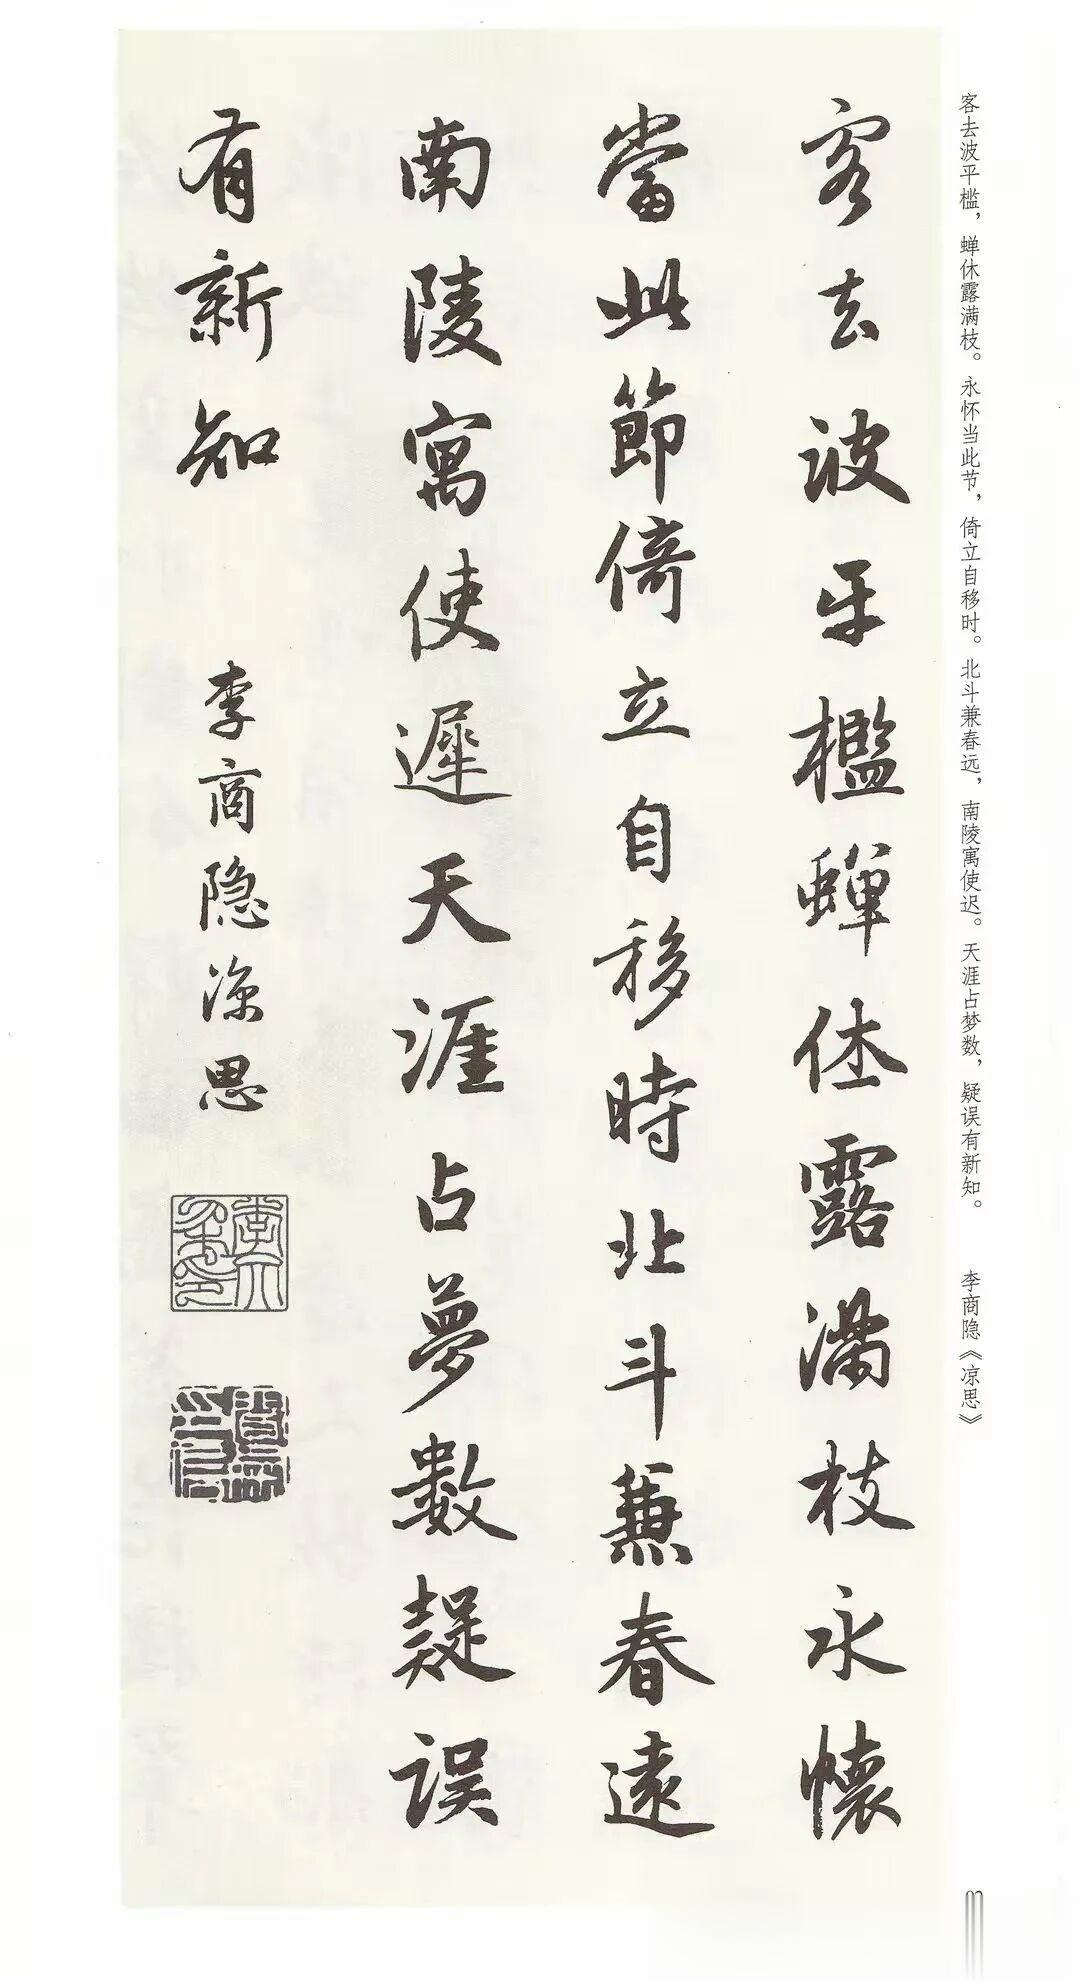 客去波平槛，蝉休露满枝。永怀当此节，倚立自移时。北斗兼春远，南陵寓使迟。天涯占梦数，疑误有新知。 李商隐《凉思》
客去波平檻蟬休露满枝永懷
當此節倚立自移時北斗兼春遠
南陵寓使遲天涯占夢數疑误
有新知 李商隐凉思